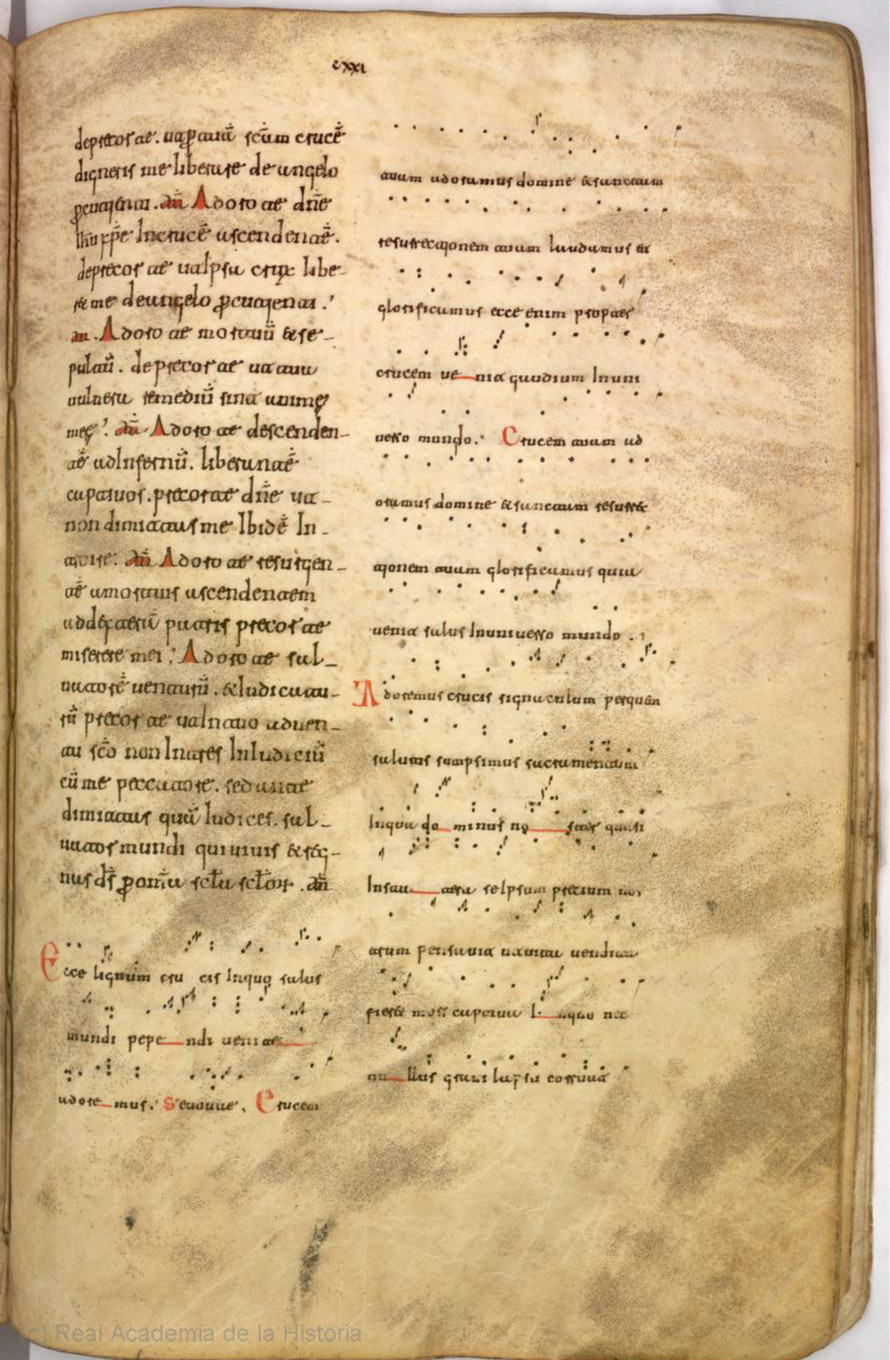 cxxi
deprecor te. ut p tuā scām crucē
digneris me liberare de angelo
pcutienti. añ Adoro te dñe
ihu xpe In cruce ascendentē.
deprecor te ut Ipsa crux libe-
ret me de angelo pcutienti.
añ. Adoro te mortuū & se-
pultū. deprecor te ut tua
vulnera remediū sint anime
meę. añ Adoro te descenden-
tē ad Infernū. liberantē
captivos. precor te dñe ut
non dimittas me Ibidē In-
troire. añ Adoro te resurgen-
tē a mortuis ascendentem
ad dexterā patris precor te
miserere mei. Adoro te sal-
vatorē venturū. & Iudicatu-
rū precor te ut In tuo adven-
tu sc̄o non Intres In Iudiciū
cū me peccatore. sed ante
dimittas quā Iudices. sal-
vator mundi qui vivis & reg-
nas ds̄ p om̄ia scła scłor. añ
Ecce lignum cru cis In quo salus
mundi pepe ndi venite
adore mus. Sevovae. Crucem
tuam adoramus domine & sanctam
resurrectionem tuam laudamus et
glorificamus ecce enim propter
crucem ve nit gaudium In uni
verso mundo. Crucem tuam ad
oramus domine & sanctam resurrec
tionem tuam glorificamus quia
venit salus In universo mundo.
Adoremus crucis signaculum per quā
salutis sumpsimus sacramentum
In qua do minus no ster quasi
In sta tera se Ipsum precium nos
trum pensavit
mors captiva In quo nec
nu llus